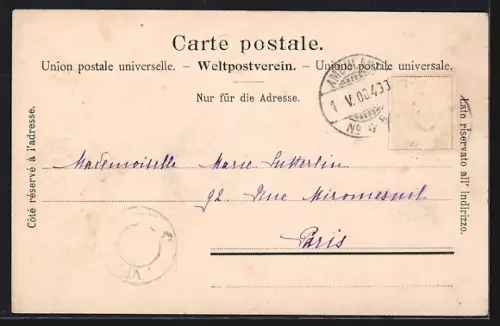 Carte postale.
Union postale universelle. – Weltpostverein. – Unione postale universale.
Nur für die Adresse.
Côté réservé à l'adresse.
Lato riservato all' indirizzo.
1 V.
No
Mademoiselle Marie Sutterlin
92, Rue Miromesnil
Paris